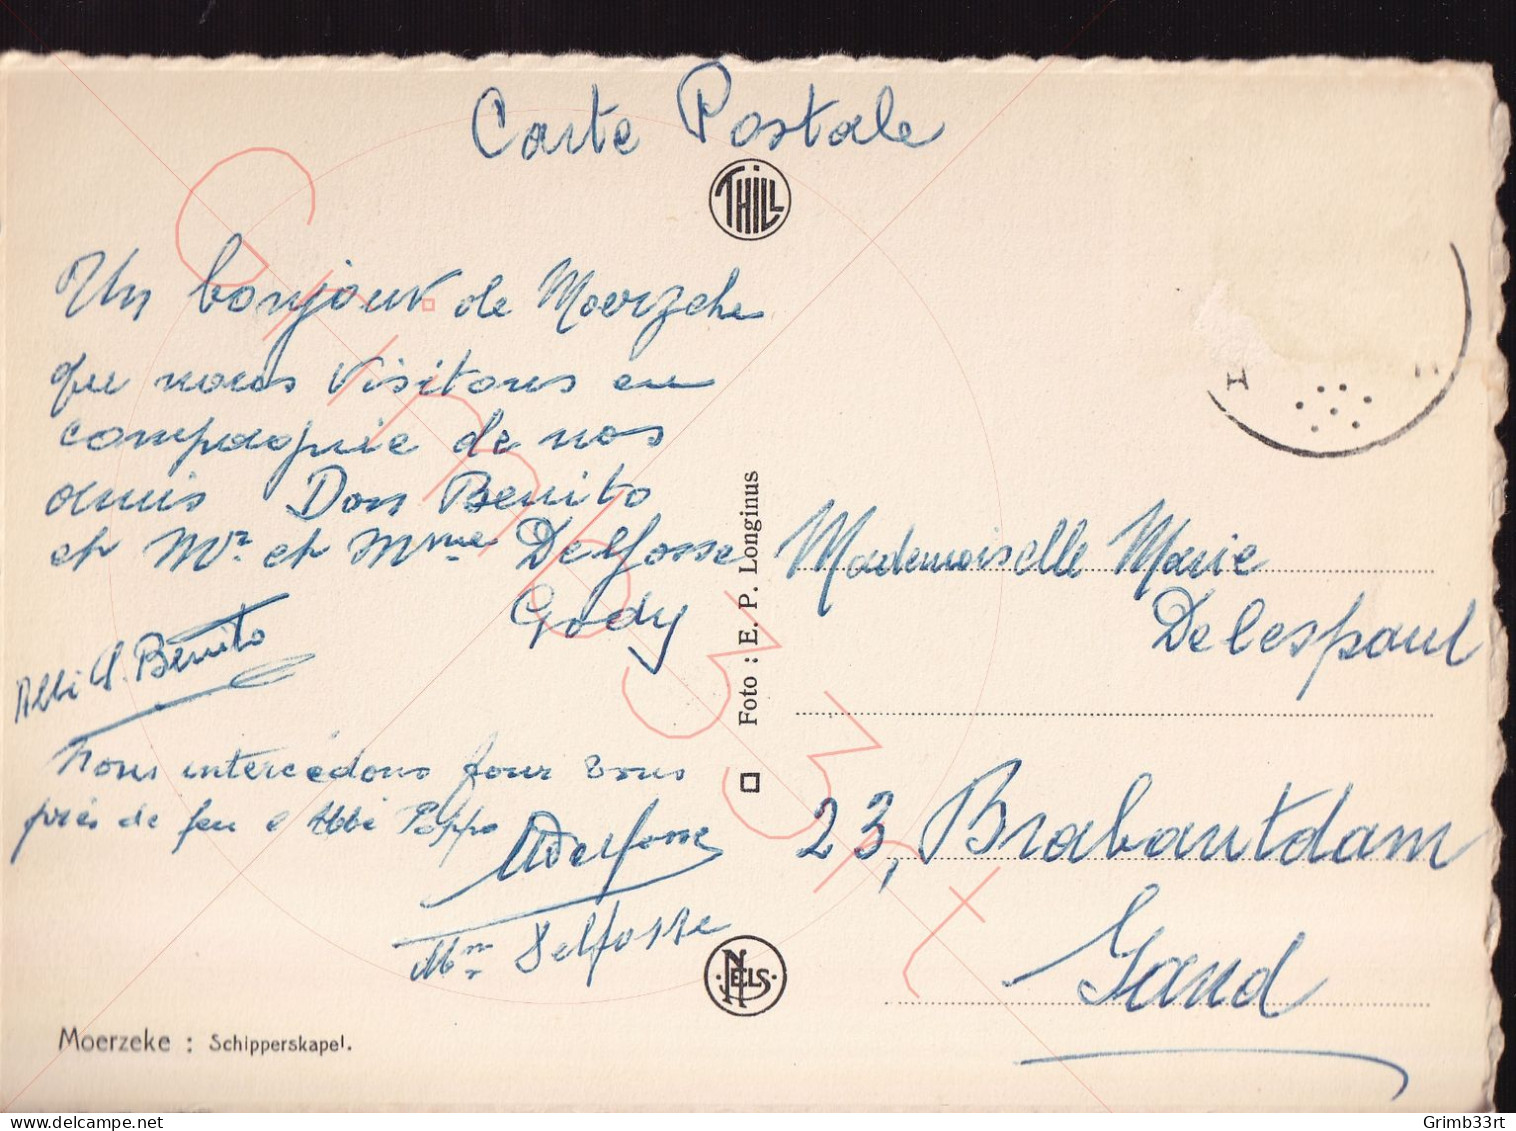 Carte Postale
THILL
Un bonjour de Moerzeke
que nous visitons en
compagnie de nos
amis Don Benito
et Mr. et Mme Delfosse
Gody
Abbé A. Benito
Nous intercédons pour vous
près de feu l'Abbé Poppe
Delfosse
Mme Delfosse
Moerzeke : Schipperskapel.
Foto : E. P. Longinus
NELS
Mademoiselle Marie
Delespaul
23, Brabantdam
Gand
Grimb33rt
Grimb33rt